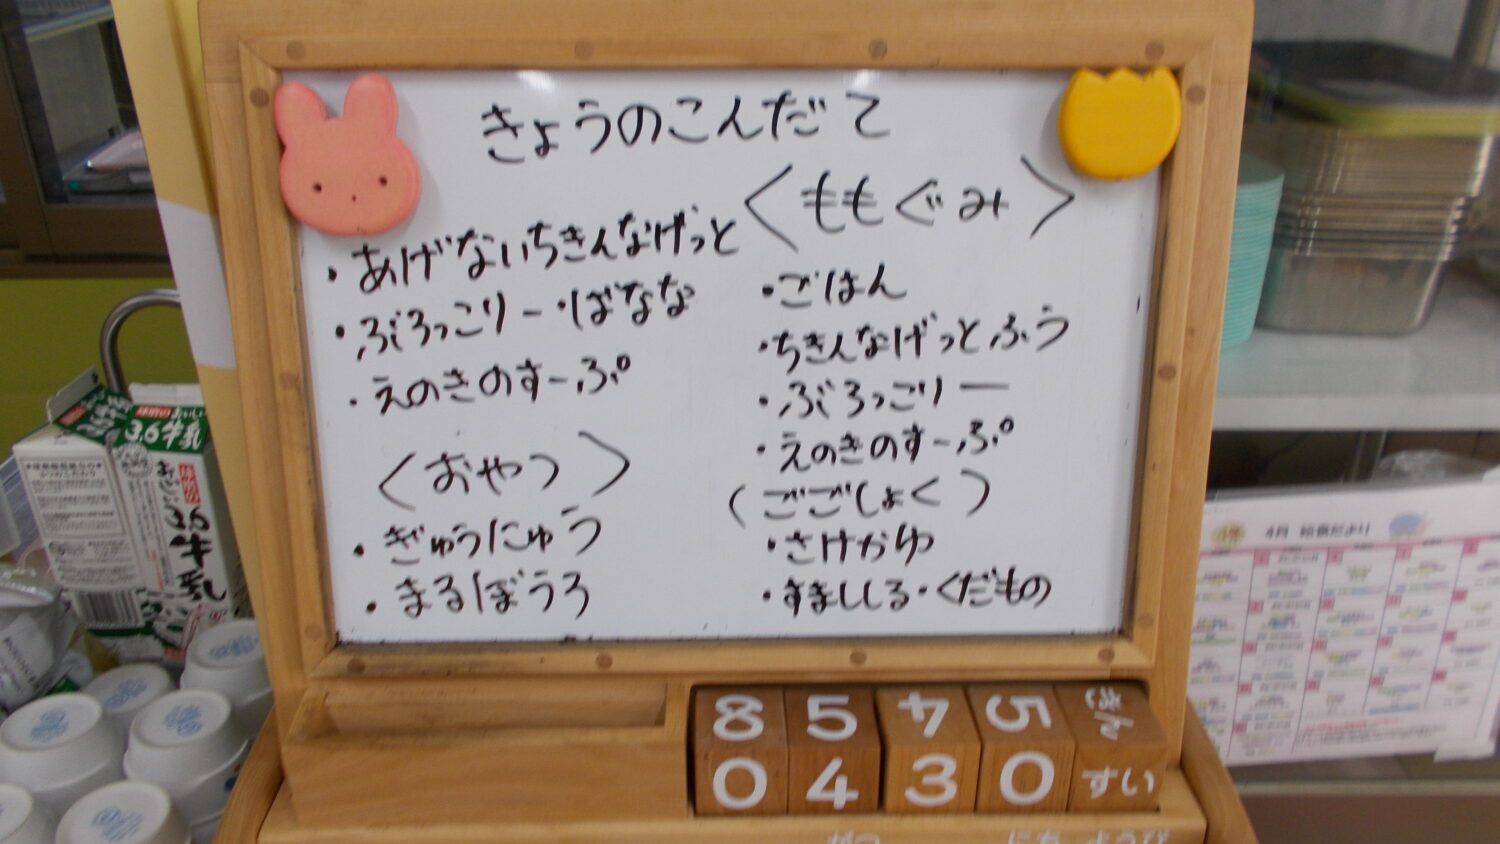 きょうのこんだて
・あげないちきんなげっと
・ぶろっこりー・ばなな
・えのきのすーぷ
〈おやつ〉
・ぎゅうにゅう
・まるぼうろ
〈ももぐみ〉
・ごはん
・ちきんなげっとふう
・ぶろっこりー
・えのきのすーぷ
(ごごしょく)
・さけかゆ
・すましじる・くだもの
8 5 4 5 きん
0 4 3 0 すい
がつ にち ようび
3.6牛乳
4月 給食だより